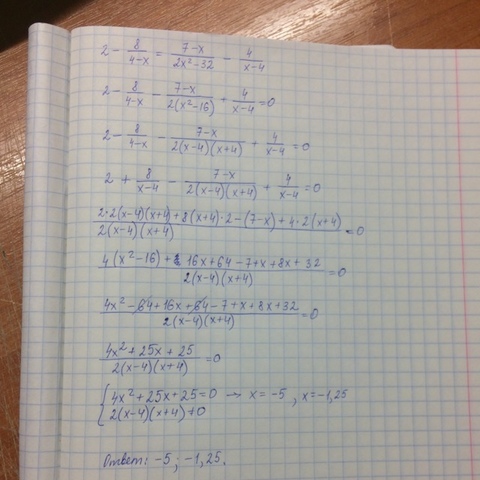 2 - 8/(4-x) = (7-x)/(2x²-32) - 4/(x-4)
2 - 8/(4-x) - (7-x)/(2(x²-16)) + 4/(x-4) = 0
2 - 8/(4-x) - (7-x)/(2(x-4)(x+4)) + 4/(x-4) = 0
2 + 8/(x-4) - (7-x)/(2(x-4)(x+4)) + 4/(x-4) = 0
(2·2(x-4)(x+4) + 8(x+4)·2 - (7-x) + 4·2(x+4))/(2(x-4)(x+4)) = 0
(4(x²-16) + 16x + 64 - 7 + x + 8x + 32)/(2(x-4)(x+4)) = 0
(4x² - 64 + 16x + 64 - 7 + x + 8x + 32)/(2(x-4)(x+4)) = 0
(4x² + 25x + 25)/(2(x-4)(x+4)) = 0
{ 4x² + 25x + 25 = 0 → x = -5 , x = -1,25
2(x-4)(x+4) ≠ 0
Ответ: -5 ; -1,25.